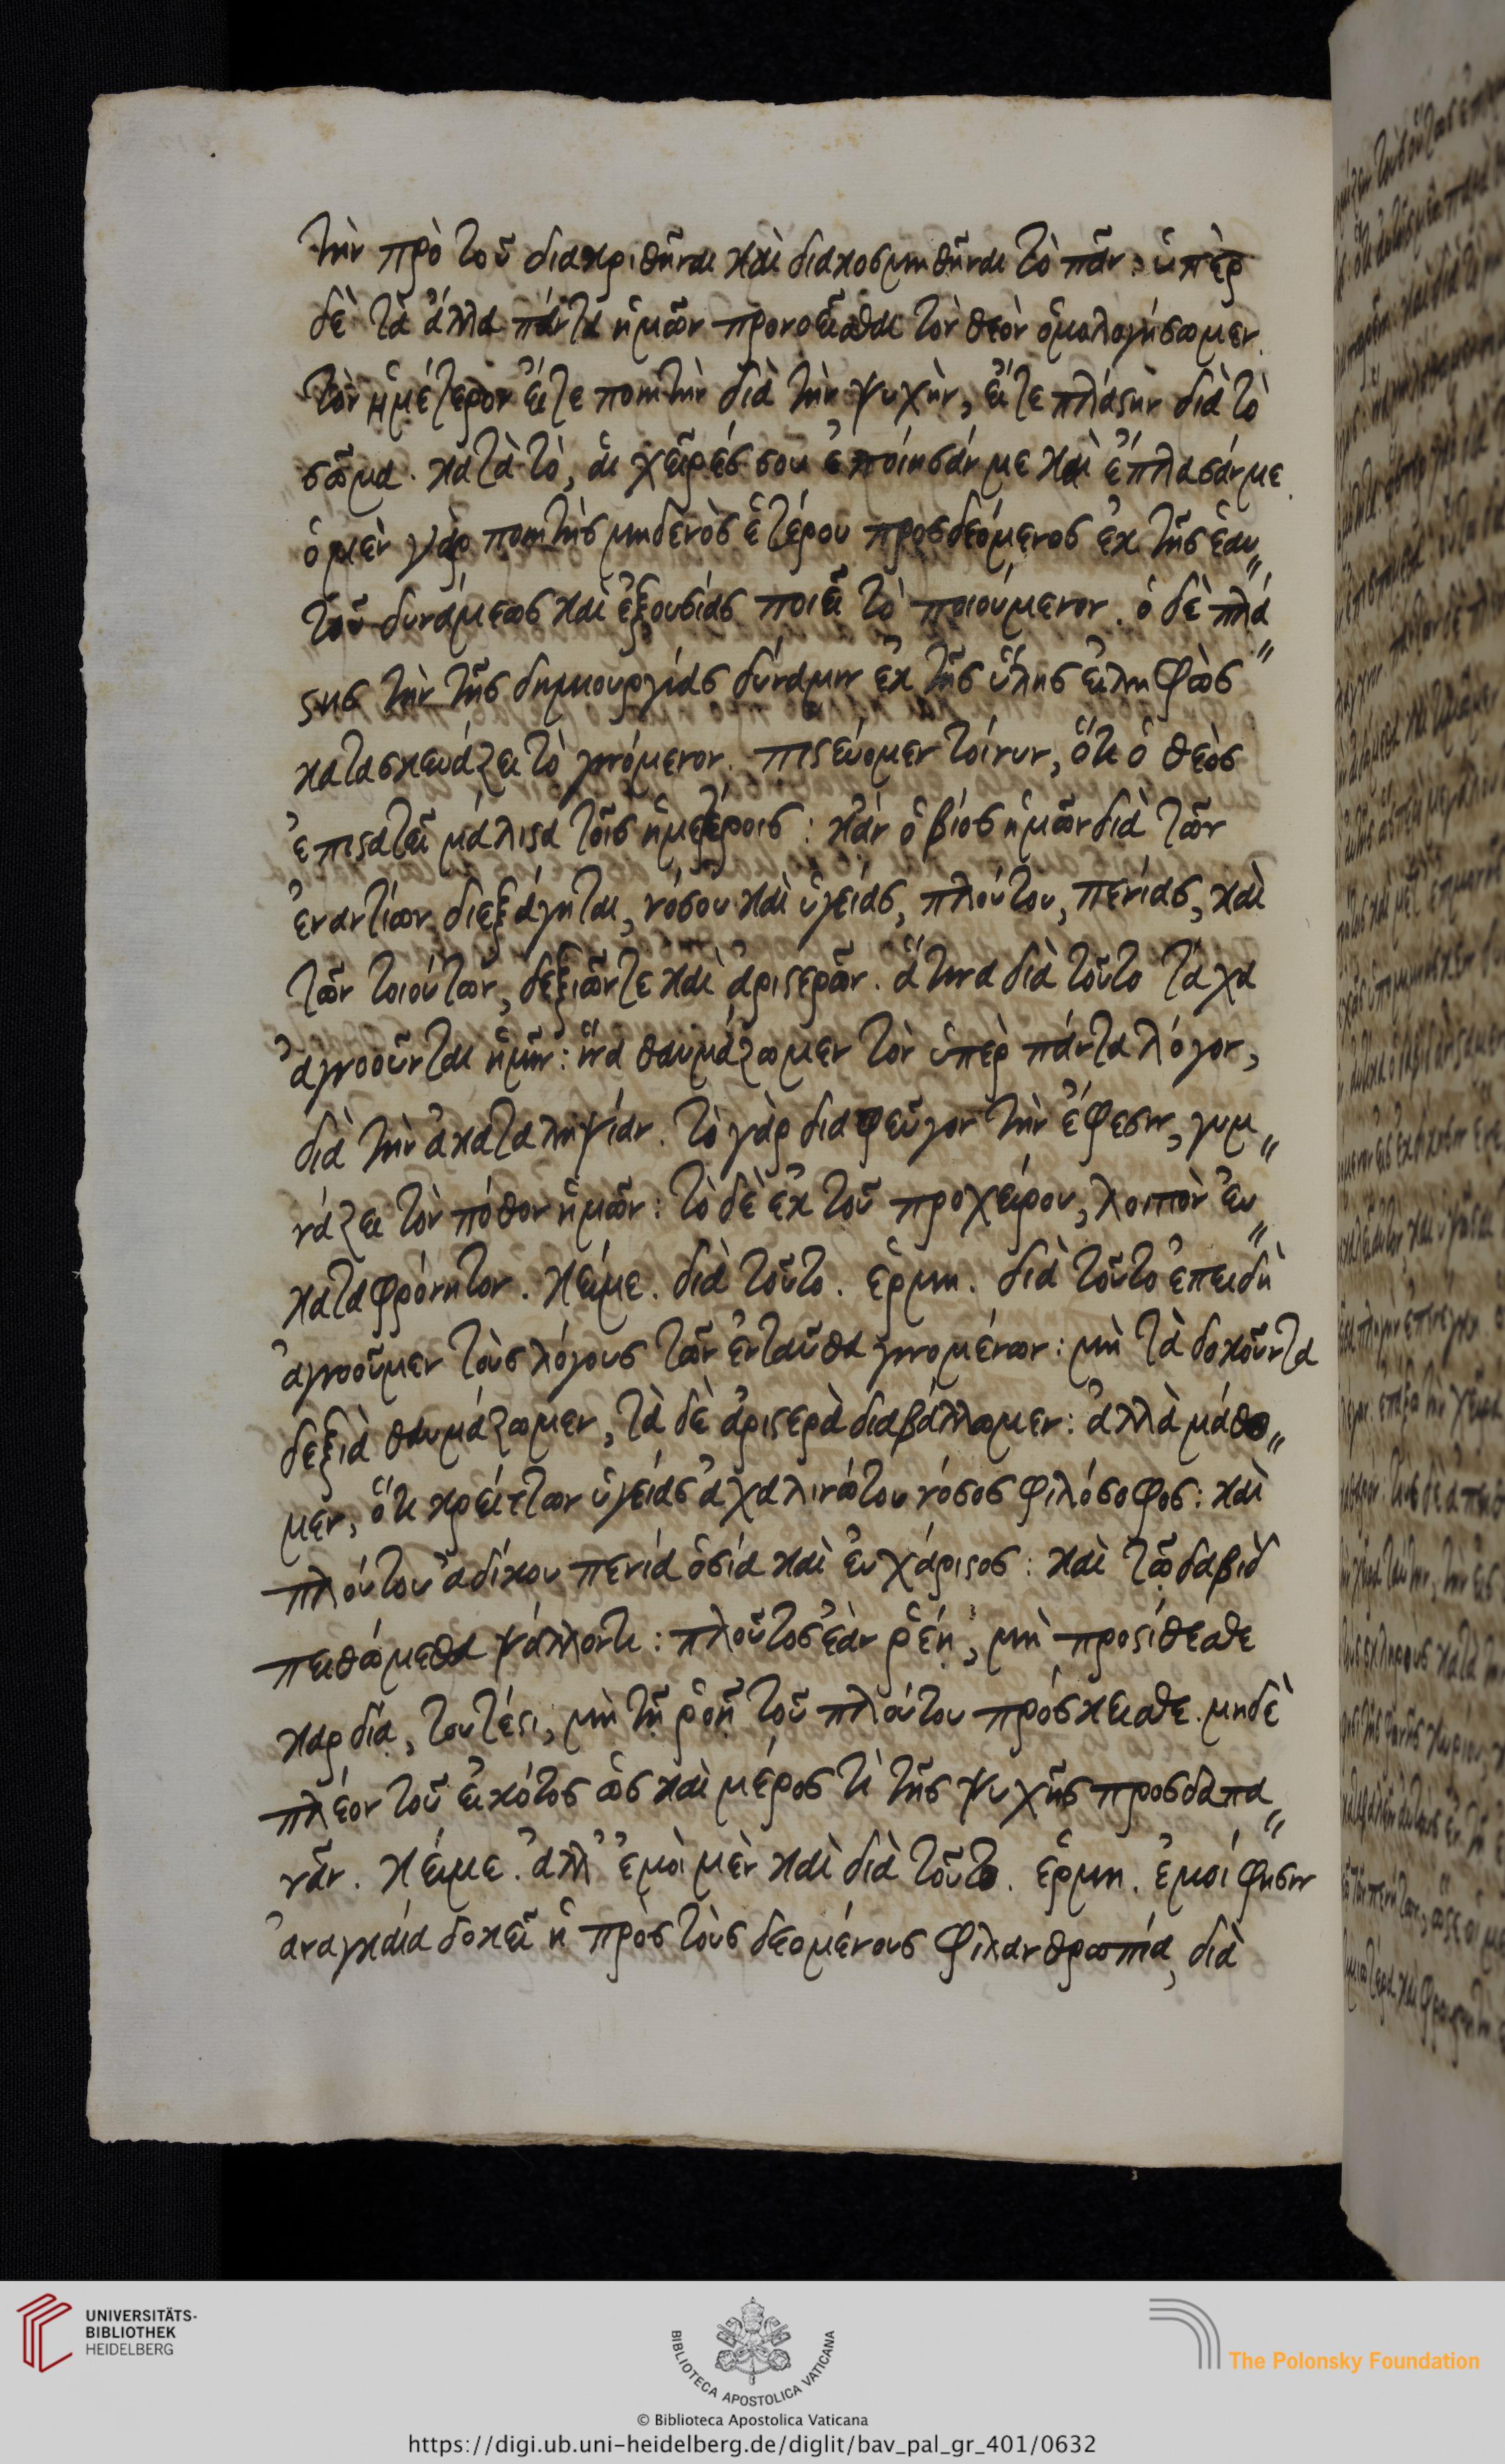 τὴν πρὸ τοῦ διακριθῆναι καὶ διακοσμηθῆναι τὸ πᾶν: ὑπὲρ
δὲ τὰ ἄλλα πάντα ἡμῶν προνοεῖσθαι τὸν θεὸν ὁμολογήσωμεν.
τὸν ἡμέτερον εἴτε ποιητὴν διὰ τὴν ψυχὴν, εἴτε πλάστην διὰ τὸ
σῶμα. κατὰ τὸ, αἱ χεῖρές σου ἐποίησάν με καὶ ἔπλασάν με.
ὁ μὲν γὰρ ποιητὴς μηδενὸς ἑτέρου προσδεόμενος ἐκ τῆς ἑαυ〃
τοῦ δυνάμεως καὶ ἐξουσίας ποιεῖ τὸ ποιούμενον. ὁ δὲ πλά〃
στης τὴν τῆς δημιουργίας δύναμιν ἐκ τῆς ὕλης εἰληφὼς
κατασκευάζει τὸ γινόμενον. πιστεύομεν τοίνυν, ὅτι ὁ θεὸς
ἐπιστατεῖ μάλιστα τοῖς ἡμετέροις: κἂν ὁ βίος ἡμῶν διὰ τῶν
ἐναντίων διεξάγηται, νόσου καὶ ὑγείας, πλούτου, πενίας, καὶ
τῶν τοιούτων, δεξιῶν τε καὶ ἀριστερῶν. ἅτινα διὰ τοῦτο τάχα
ἀγνοοῦνται ἡμῖν: ἵνα θαυμάζωμεν τὸν ὑπὲρ πάντα λόγον,
διὰ τὴν ἀκαταληψίαν. τὸ γὰρ διαφεῦγον τὴν ἔφεσιν, γυμ〃
νάζει τὸν πόθον ἡμῶν: τὸ δὲ ἐκ τοῦ προχείρου, λοιπὸν εὐ〃
καταφρόνητον. κείμε. διὰ τοῦτο. ἑρμη. διὰ τοῦτο ἐπειδὴ
ἀγνοοῦμεν τοὺς λόγους τῶν ἐνταῦθα γινομένων: μὴ τὰ δοκοῦντα
δεξιὰ θαυμάζωμεν, τὰ δὲ ἀριστερὰ διαβάλλωμεν: ἀλλὰ μάθω〃
μεν, ὅτι κρείττων ὑγείας ἀχαλινώτου νόσος φιλόσοφος: καὶ
πλούτου ἀδίκου πενία ὁσία καὶ εὐχάριστος: καὶ τῷ δαβὶδ
πειθώμεθα ψάλλοντι: πλοῦτος ἐὰν ῥέῃ, μὴ προστίθεσθε
καρδίᾳ, τουτέστι, μὴ τῇ ῥοῇ τοῦ πλούτου πρόσκεισθε. μηδὲ
πλέον τοῦ εἰκότος ὡς καὶ μέρος τὶ τῆς ψυχῆς προσδαπα〃
νᾶν. κείμε. ἀλλ' ἐμοὶ μὲν καὶ διὰ τοῦτο. ἑρμη. ἐμοί φησιν
ἀναγκαία δοκεῖ ἡ πρὸς τοὺς δεομένους φιλανθρωπία, διὰ
UNIVERSITÄTS-
BIBLIOTHEK
HEIDELBERG
BIBLIOTECA APOSTOLICA VATICANA
The Polonsky Foundation
© Biblioteca Apostolica Vaticana
https://digi.ub.uni-heidelberg.de/diglit/bav_pal_gr_401/0632